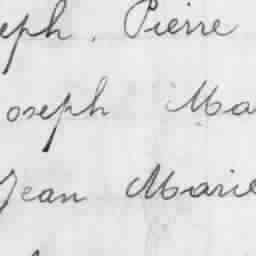 eph. Pierre
oseph Ma
Jean Marie